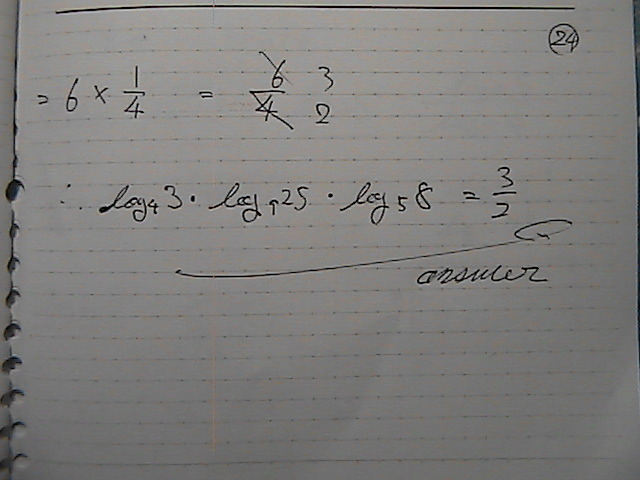 24
= 6 × 1/4 = 6/4 3/2
∴ log₄3 · log₉25 · log₅8 = 3/2
answer